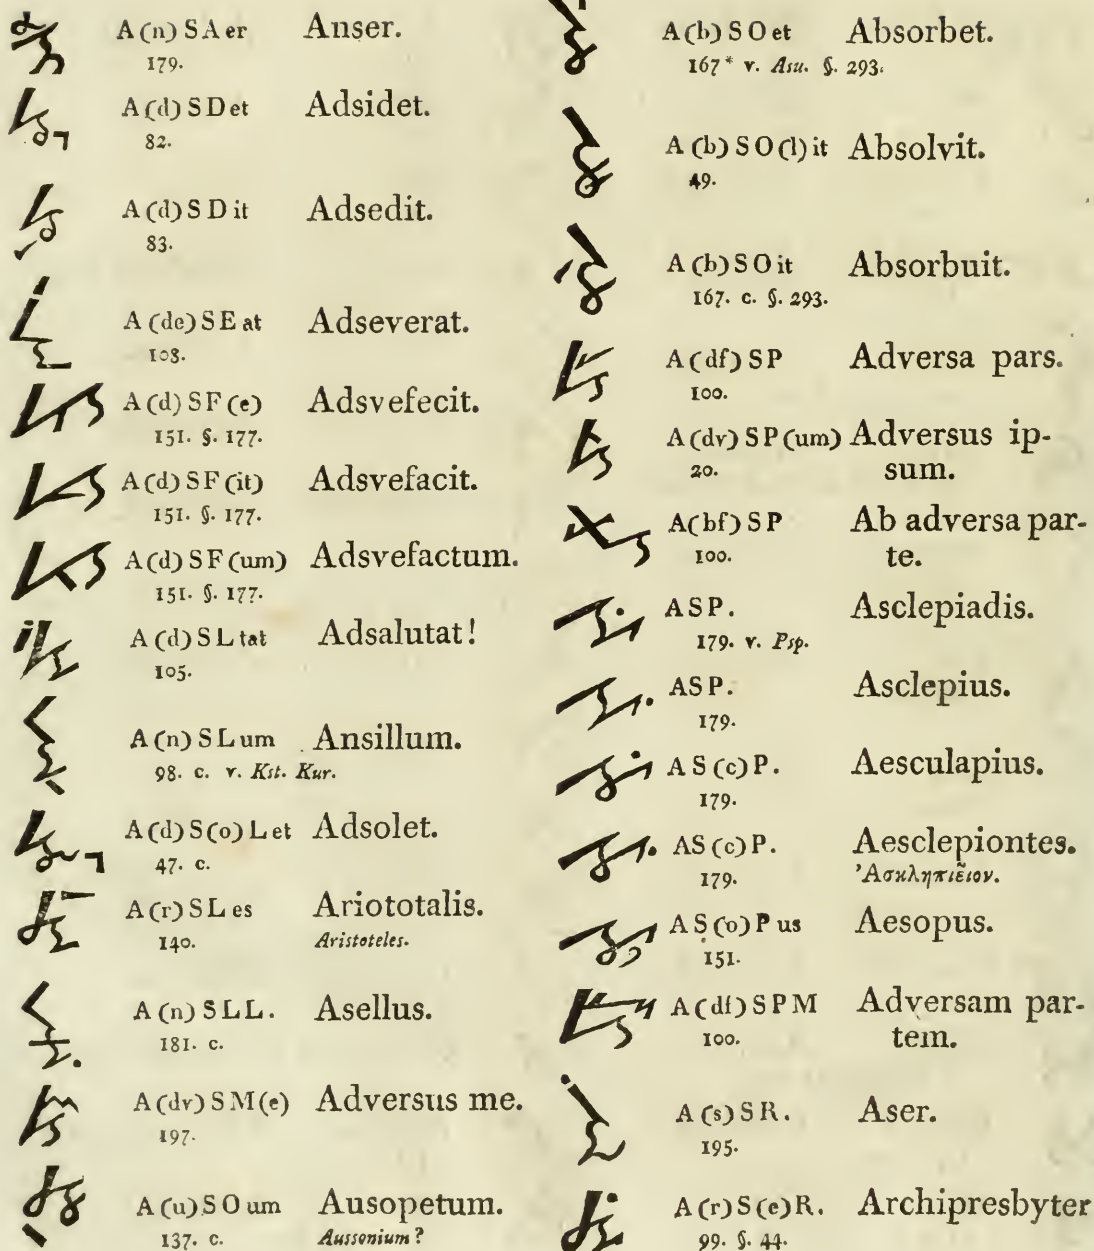 A (n) S A er Anser.
179.
A (d) S D et Adsidet.
82.
A (d) S D it Adsedit.
83.
A (de) S E at Adseverat.
108.
A (d) S F (e) Adsvefecit.
151. §. 177.
A (d) S F (it) Adsvefacit.
151. §. 177.
A (d) S F (um) Adsvefactum.
151. §. 177.
A (d) S L tat Adsalutat!
105.
A (n) S L um Ansillum.
98. c. v. Kst. Kur.
A (d) S (o) L et Adsolet.
47. c.
A (r) S L es Ariototalis.
140. Aristoteles.
A (n) S L L. Asellus.
181. c.
A (dv) S M (e) Adversus me.
197.
A (u) S O um Ausopetum.
137. c. Aussonium?
A (b) S O et Absorbet.
167* v. Asu. §. 293.
A (b) S O (l) it Absolvit.
49.
A (b) S O it Absorbuit.
167. c. §. 293.
A (df) S P Adversa pars.
100.
A (dv) S P (um) Adversus ip-
20. sum.
A (bf) S P Ab adversa par-
100. te.
A S P. Asclepiadis.
179. v. Psp.
A S P. Asclepius.
179.
A S (c) P. Aesculapius.
179.
A S (c) P. Aesclepiontes.
179. Ἀσκληπιεῖον.
A S (o) P us Aesopus.
151.
A (df) S P M Adversam par-
100. tem.
A (s) S R. Aser.
195.
A (r) S (e) R. Archipresbyter
99. §. 44.